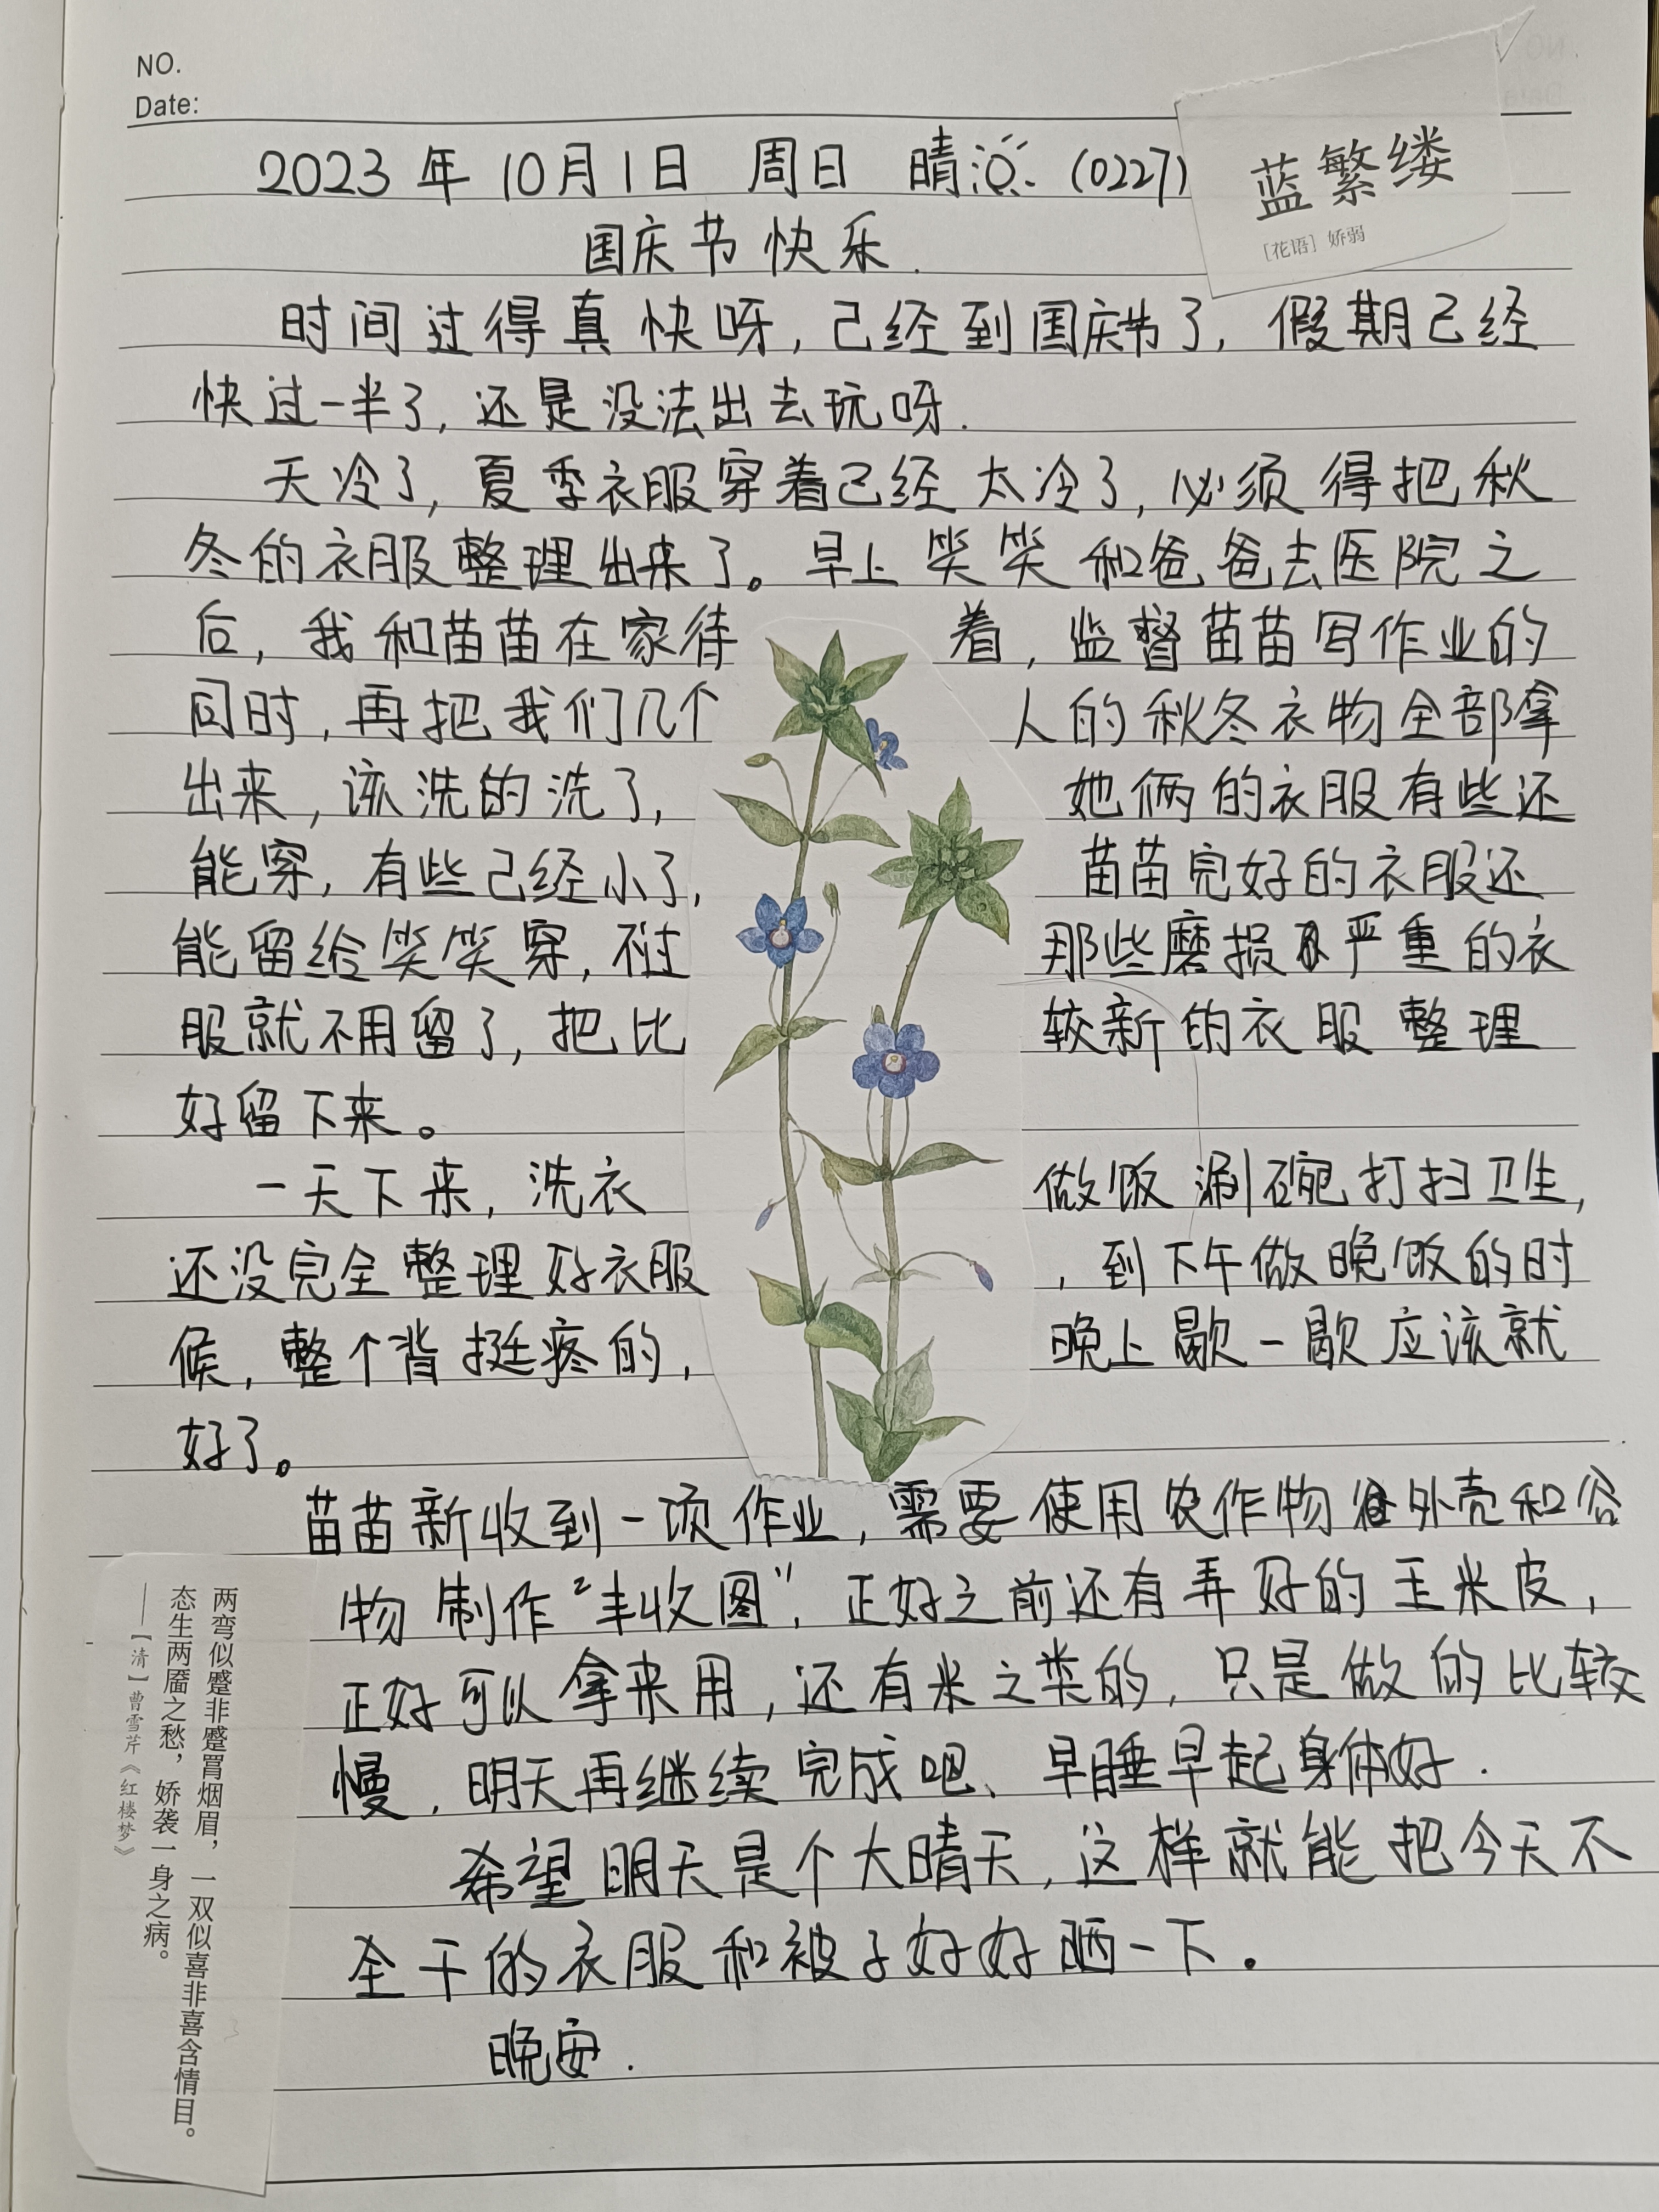 NO.
Date:
2023年10月1日 周日 晴 (0227)
蓝繁缕
[花语] 娇弱
国庆节快乐.
时间过得真快呀,己经到国庆节了,假期己经
快过一半了,还是没法出去玩呀.
天冷了,夏季衣服穿着己经太冷了,必须得把秋
冬的衣服整理出来了。早上笑笑和爸爸去医院之
后,我和苗苗在家待着,监督苗苗写作业的
同时,再把我们几个人的秋冬衣物全部拿
出来,该洗的洗了,她俩的衣服有些还
能穿,有些己经小了,苗苗完好的衣服还
能留给笑笑穿,不过那些磨损严重的衣
服就不用留了,把比较新的衣服整理
好留下来。
一天下来,洗衣做饭涮碗打扫卫生,
还没完全整理好衣服,到下午做晚饭的时
候,整个背挺疼的,晚上歇一歇应该就
好了。
苗苗新收到一项作业,需要使用农作物外壳和谷
物制作“丰收图”,正好之前还有弄好的玉米皮,
正好可以拿来用,还有米之类的,只是做的比较
慢,明天再继续完成吧、早睡早起身体好.
希望明天是个大晴天,这样就能把今天不
全干的衣服和被子好好晒一下.
晚安.
两弯似蹙非蹙罥烟眉,一双似喜非喜含情目。
态生两靥之愁,娇袭一身之病。
——【清】曹雪芹《红楼梦》